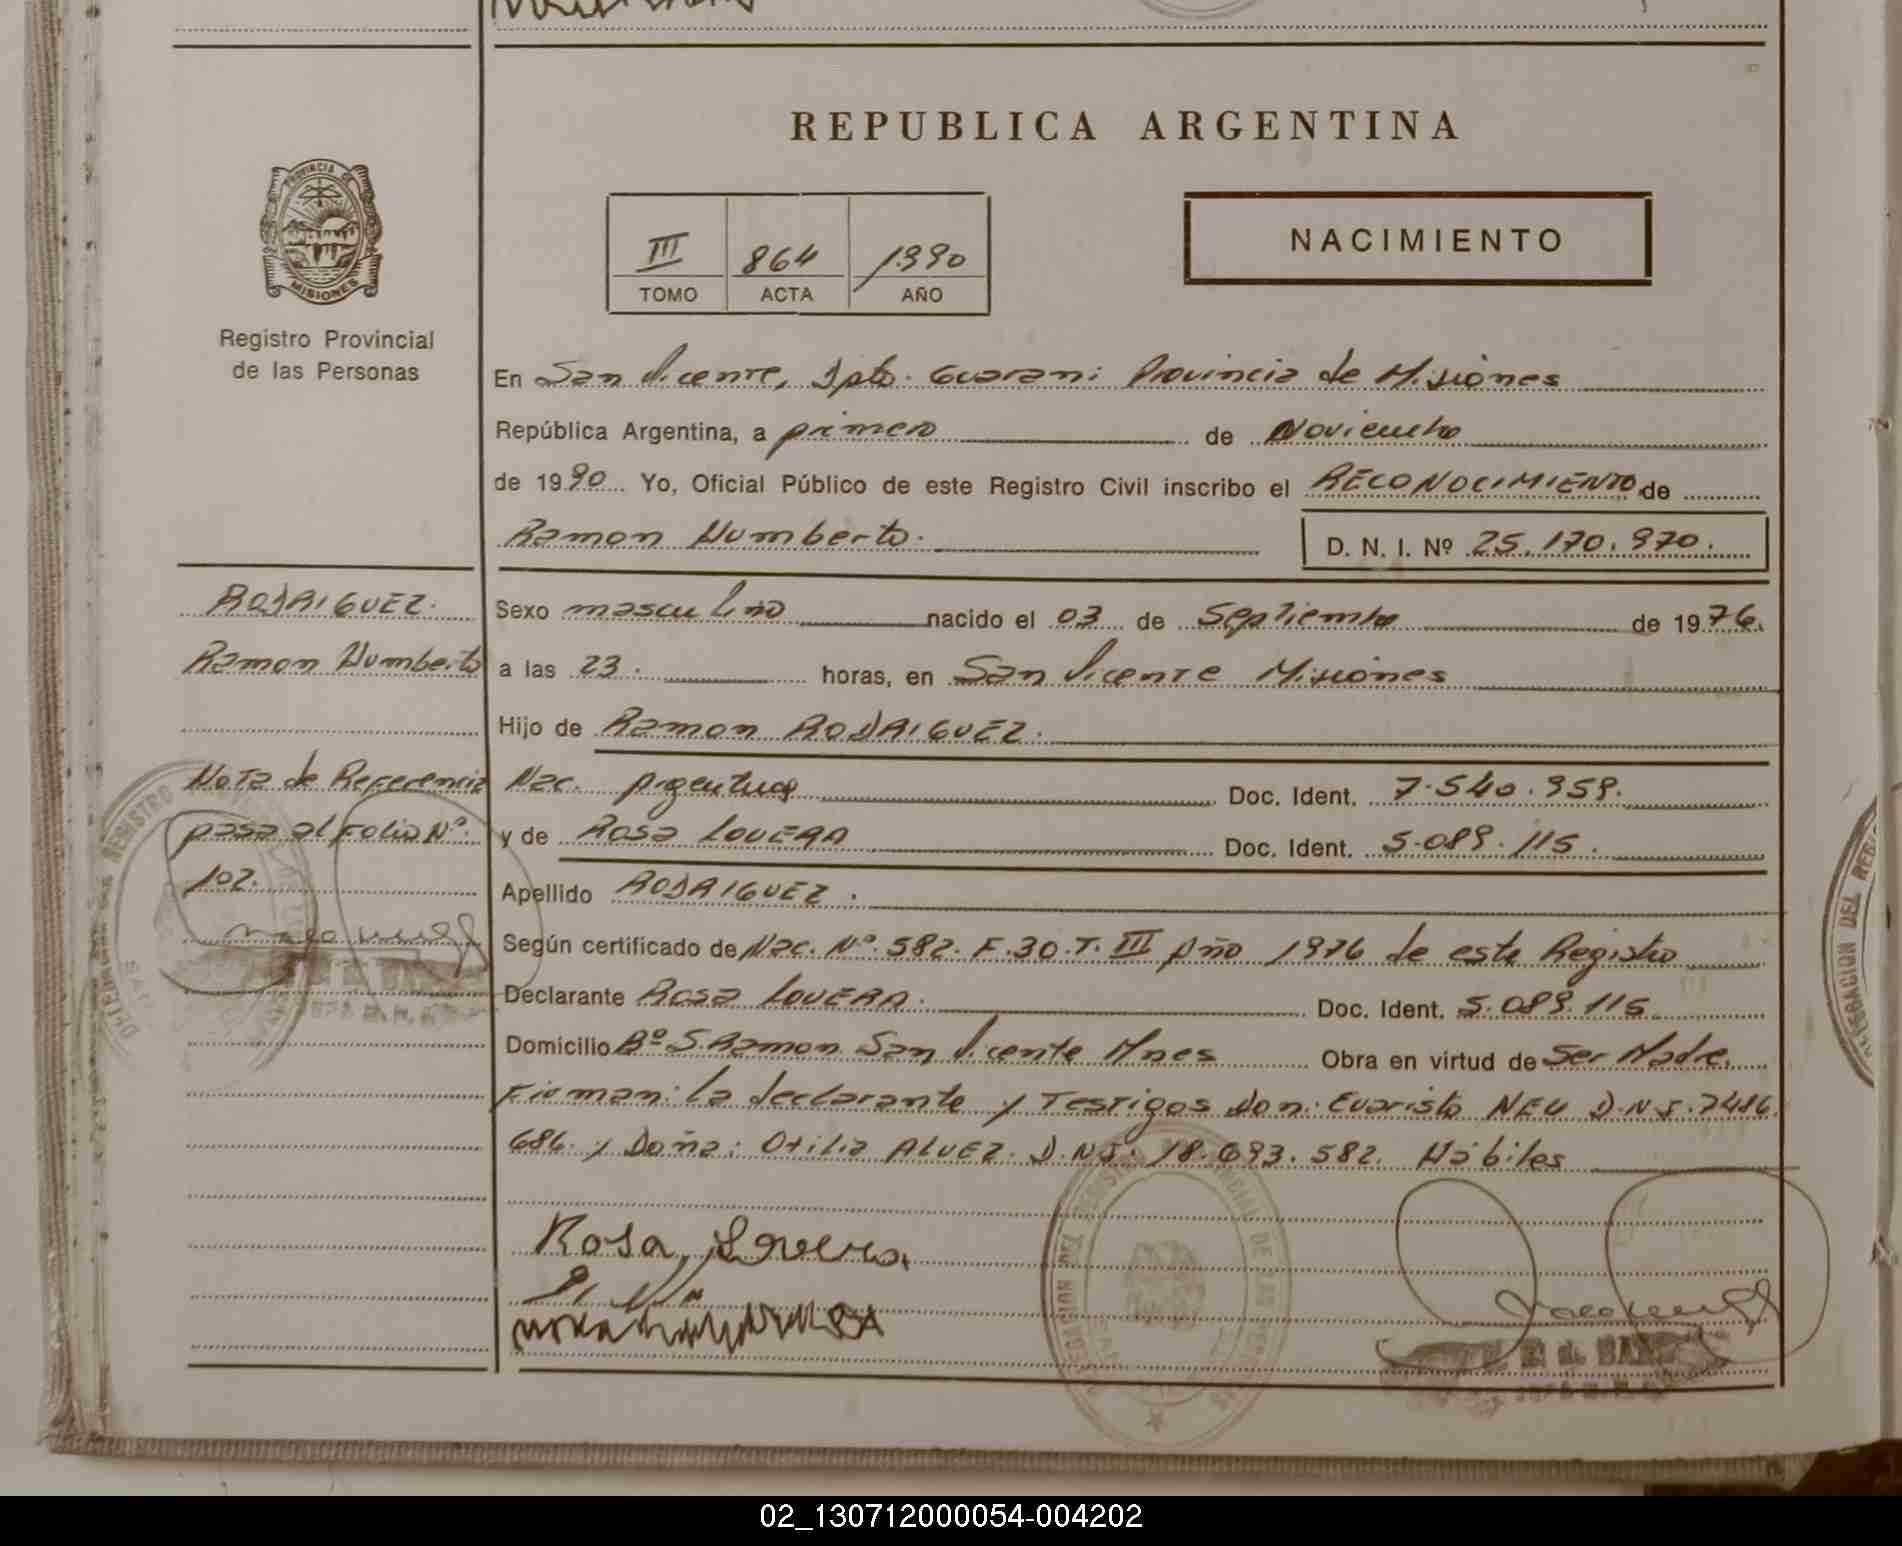 REPUBLICA ARGENTINA
PROVINCIA DE
MISIONES
Registro Provincial
de las Personas
III 864 1990
TOMO ACTA AÑO
NACIMIENTO
En San Vicente, Dpto. Guarani Provincia de Misiones
República Argentina, a primero de Noviembre
de 1990 Yo, Oficial Público de este Registro Civil inscribo el RECONOCIMIENTO de
Ramon Humberto. D. N. I. Nº 25.170.970.
RODRIGUEZ.
Ramon Humberto
Sexo masculino nacido el 03 de Septiembre de 1976.
a las 23. horas, en San Vicente Misiones
Hijo de Ramon RODRIGUEZ.
Nac. Argentina Doc. Ident. 7.540.959.
y de Rosa LOVERA Doc. Ident. 5.089.115.
Apellido RODRIGUEZ.
Nota de Referencia
pasa al Folio Nº.
102.
Según certificado de Nac. Nº. 582. F.30.T. III Año 1976 de este Registro
Declarante Rosa LOVERA. Doc. Ident. 5.089.115
Domicilio Bº S.Ramon San Vicente Mnes Obra en virtud de Ser Madre.
Firman: la declarante y Testigos Don: Evaristo NEU D.N.I. 7486
686. y Doña: Otilia ALVEZ. D.N.I. 18.693.582. Hábiles
Rosa, Lovera.
DELEGACION DEL REG
02_130712000054-004202